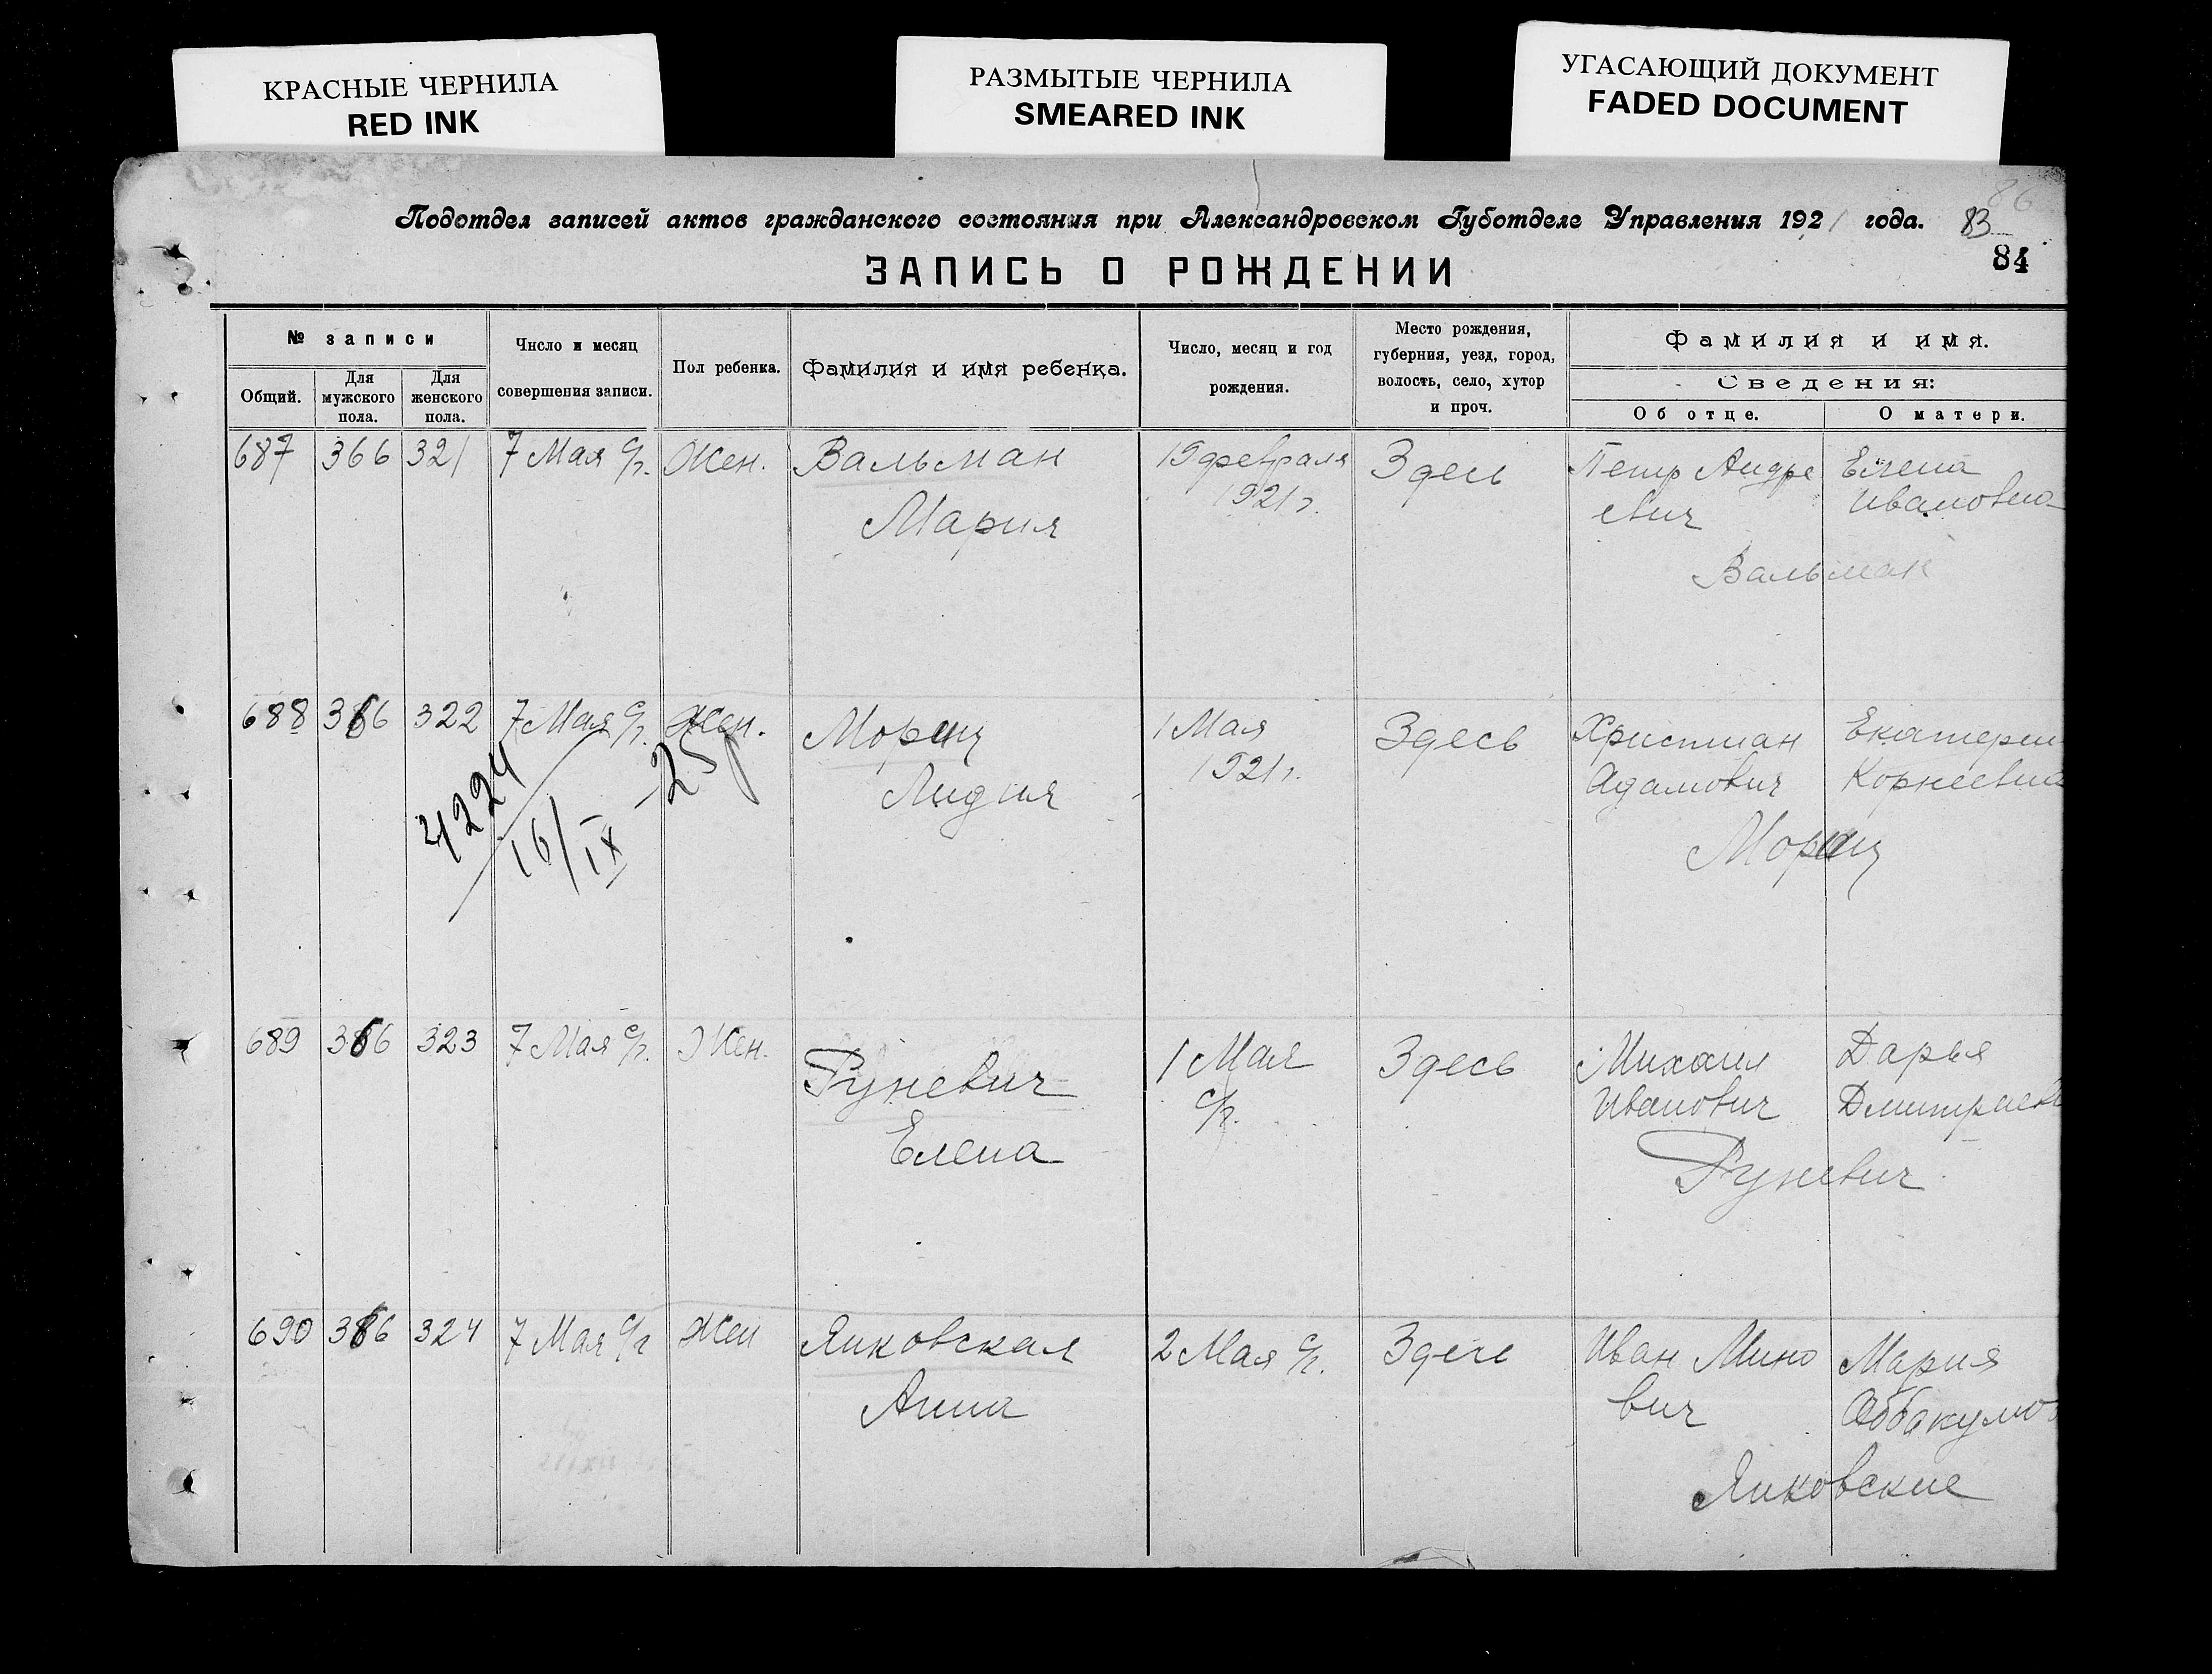 КРАСНЫЕ ЧЕРНИЛА
RED INK
РАЗМЫТЫЕ ЧЕРНИЛА
SMEARED INK
УГАСАЮЩИЙ ДОКУМЕНТ
FADED DOCUMENT
86
Подотдел записей актов гражданского состояния при Александровском Губотделе Управления 1921 года. 83
84
ЗАПИСЬ О РОЖДЕНИИ
№ записи
Общий.
Для мужского пола.
Для женского пола.
Число и месяц
совершения записи.
Пол ребенка.
Фамилия и имя ребенка.
Число, месяц и год
рождения.
Место рождения,
губерния, уезд, город,
волость, село, хутор
и проч.
Фамилия и имя.
Сведения:
Об отце.
О матери.
687 366 321 7 Мая с/г. Жен. Вальман 19 февраля Здесь Петр Андре Елена
Мария 1921 г. евич Ивановна
Вальман
688 366 322 7 Мая с/г. Жен. Мориц 1 Мая Здесь Христиан Екатерин
Лидия 1921 г. Адамович Корнеевна
4224 16/IX Мориц
689 366 323 7 Мая с/г. Жен. Руневич 1 Мая Здесь Михаил Дарья
Елена с/г. Иванович Дмитриев
Руневич
690 366 324 7 Мая с/г Жен Янковская 2 Мая с/г. Здесь Иван Мино Мария
Анна вич Аббакумо
Янковские